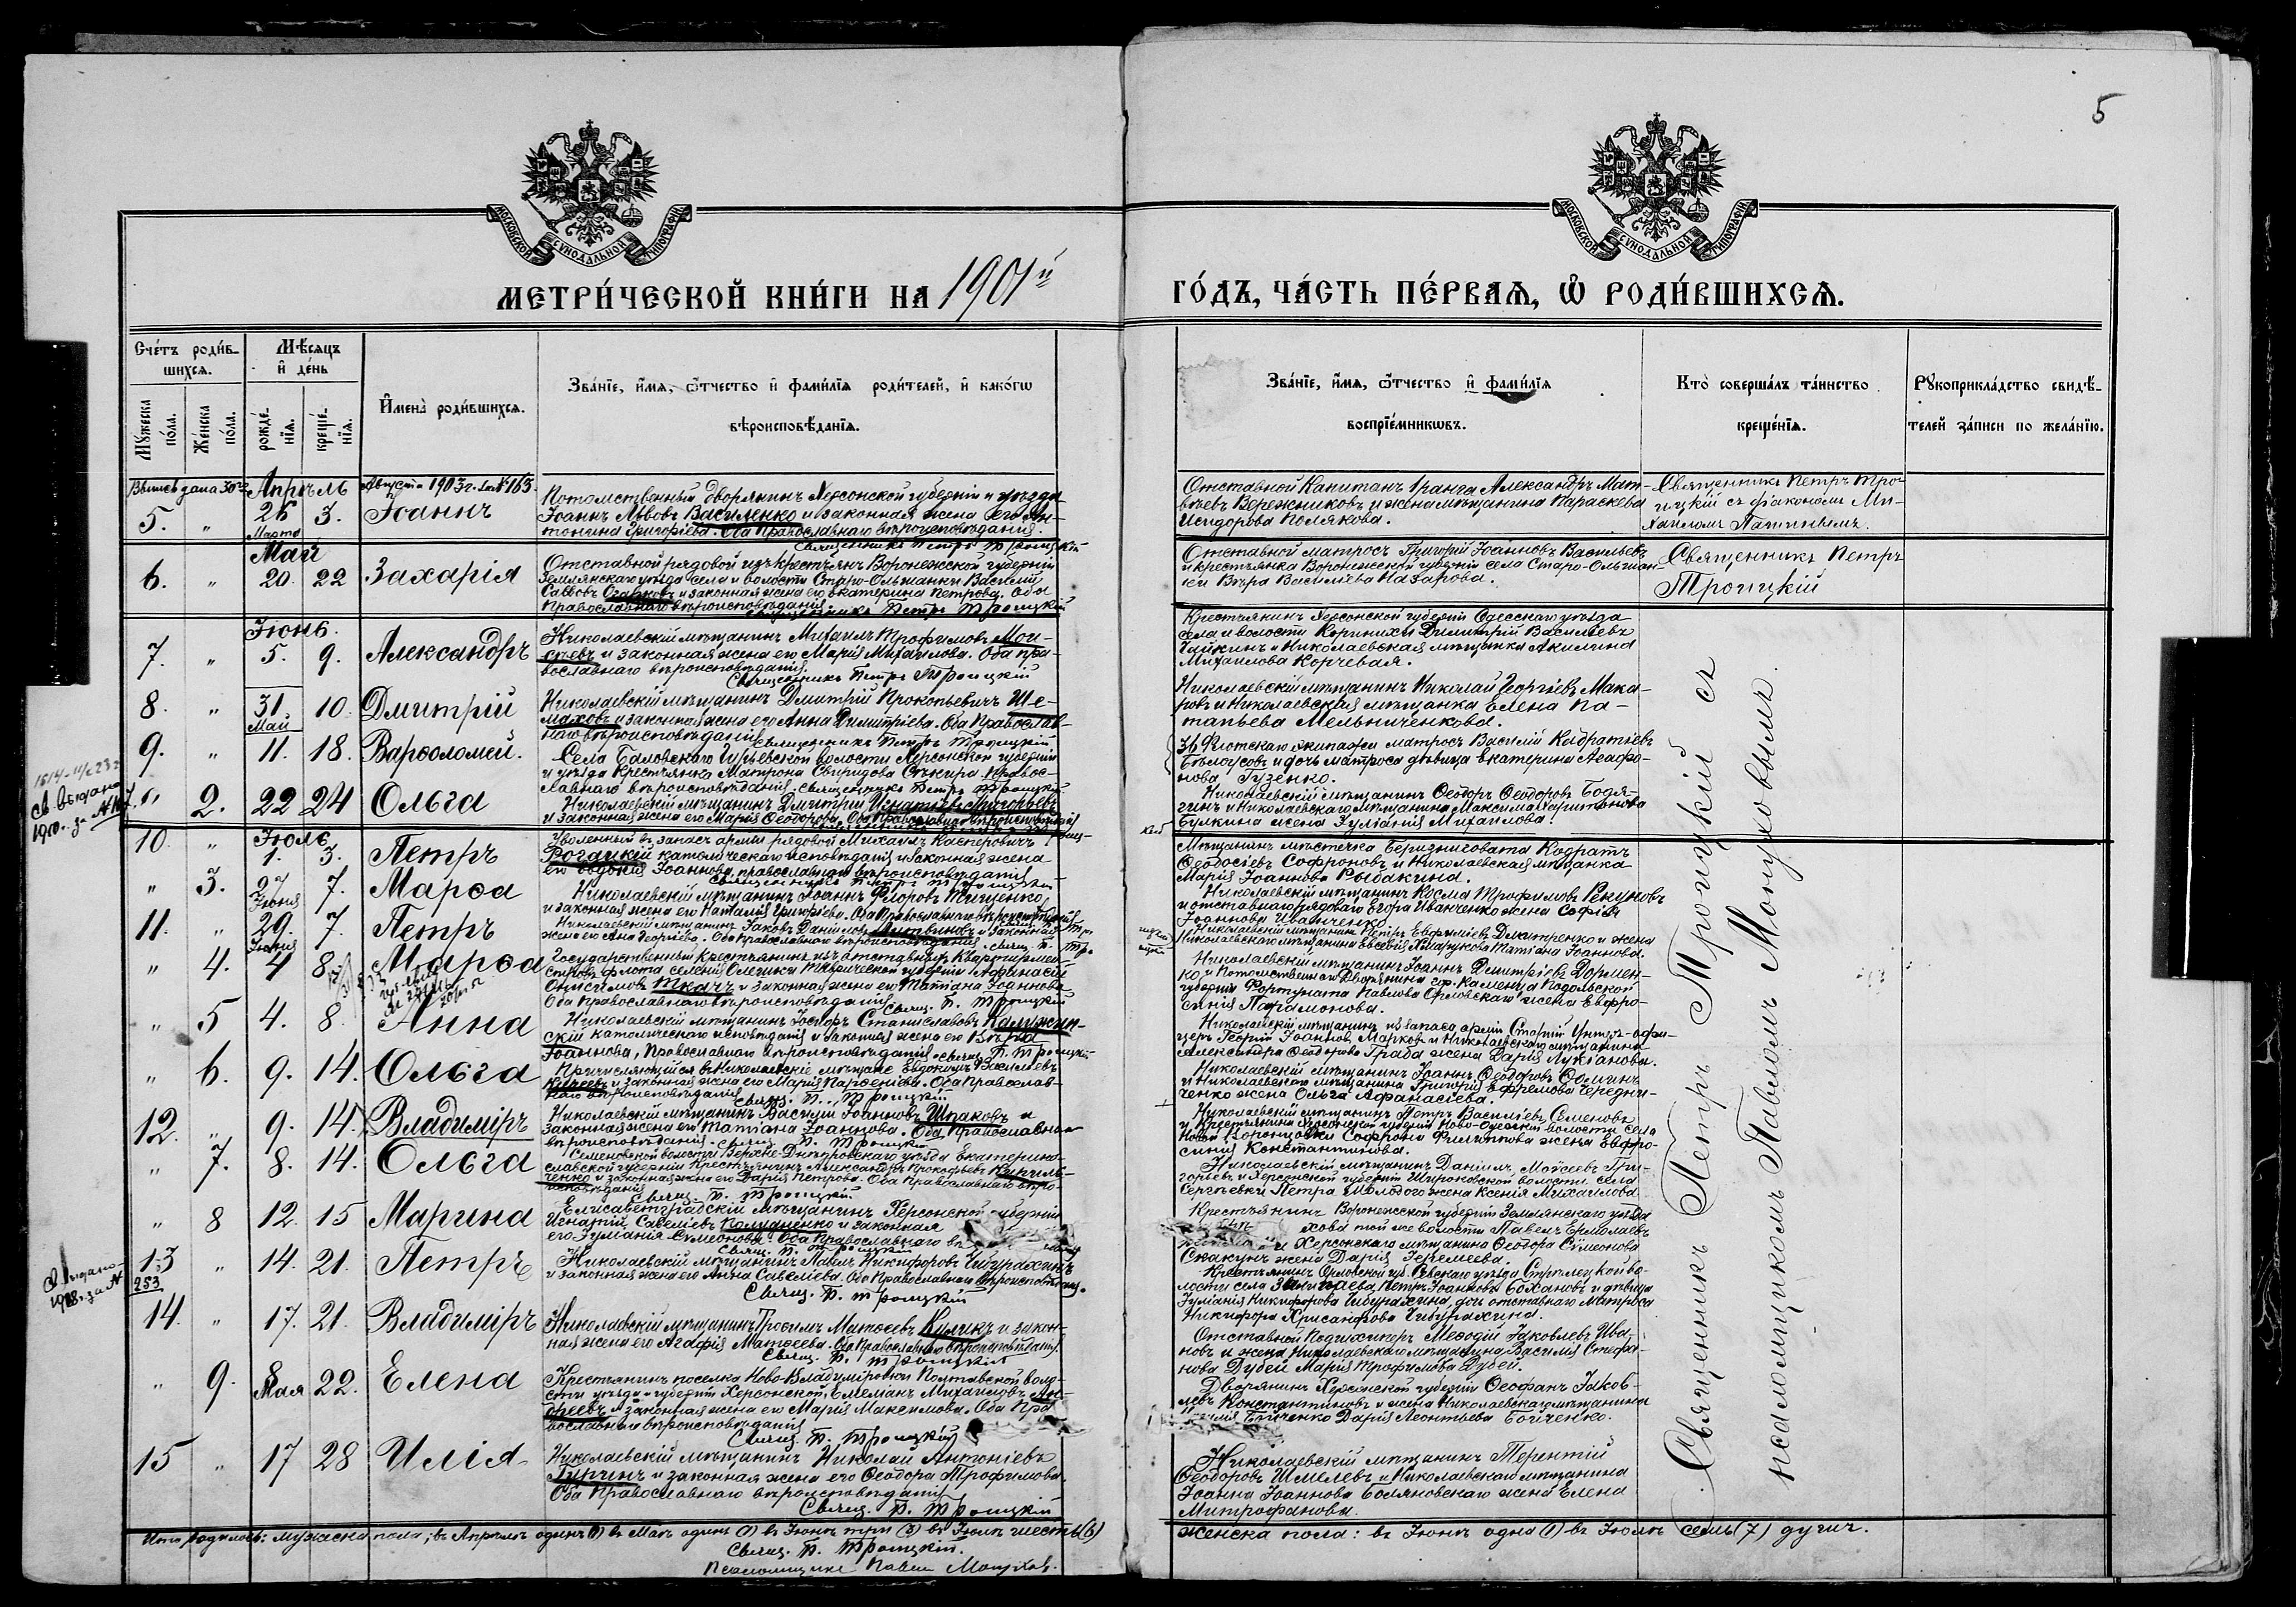 5
МОСКОВСКОЙ СѴНОДАЛЬНОЙ ТИПОГРАФІИ
МОСКОВСКОЙ СѴНОДАЛЬНОЙ ТИПОГРАФІИ
МЕТРИ́ЧЕСКОЙ КНИ́ГИ НА 1901й
ГО́ДЪ, ЧА́СТЬ ПЕ́РВАѦ, Ѽ РОДИ́ВШИХСѦ.
Сче́тъ роди́в-
шихсѧ.
Мꙋ́жеска по́ла.
Же́нска по́ла.
Мѣ́сяцъ и де́нь
рожде́-нїѧ.
креще́-нїѧ.
Имена̀ роди́вшихсѧ.
Зва́нїе, и́мѧ, ѻ҆́тчество и фами́лїѧ роди́телей, и како́гѡ
вѣроисповѣ́данїѧ.
Зва́нїе, и́мѧ, ѻ҆́тчество и фами́лїѧ
воспрїе́мникѡвъ.
Кто̀ соверша́лъ та́инство
креще́нїѧ.
Рꙋкоприкла́дство свидѣ́-
телей за́писи по жела́нїю.
Выпись дана 30го Августа 1903 г. за № 163.
Апрѣль
5. " 26 Марта 3. Іоаннъ
Потомственный дворянинъ Херсонской губерніи и уѣзда
Іоаннъ Львовъ Василенко и законная жена его Ан-
тонина Григоріева. Оба Православнаго вѣроисповѣданія.
Священникъ Петръ Троицкій
Отставной Капитанъ 1 ранга Александръ Мат-
вѣевъ Вережниковъ и жена мѣщанина Параскева
Исидорова Полякова.
Священникъ Петръ Тро-
ицкій съ діакономъ Ми-
хаиломъ
Май
6. " 20. 22 Захарія
Отставной рядовой изъ крестьянъ Воронежской губерніи
Землянскаго уѣзда села и волости Старо-Ольшанки Василій
Саввовъ Огарковъ и законная жена его Екатерина Петрова. Оба
Православнаго вѣроисповѣданія.
Священникъ Петръ Троицкій
Отставной матросъ Григорій Іоанновъ Васильевъ
и крестьянка Воронежской губерніи села Старо-Ольшан-
ки Вѣра Василіева Назарова.
Священникъ Петръ
Троицкій
Іюнь.
7. " 5. 9. Александръ
Николаевскій мѣщанинъ Михаилъ Трофимовъ Мои-
сеевъ и законная жена его Марія Михаилова. Оба пра-
вославнаго вѣроисповѣданія.
Священникъ Петръ Троицкій
Крестьянинъ Херсонской губерніи Одесскаго уѣзда
села и волости Коринихи Димитрій Васильевъ
Чайкинъ и Николаевская мѣщанка Акилина
Михаилова Корчевая.
8. " 31 Май 10. Дмитрій
Николаевскій мѣщанинъ Дмитрій Прокопьевичъ Ше-
маховъ и законная жена его Анна Димитріева. Оба Православ-
наго вѣроисповѣданія. Священникъ Петръ Троицкій
Николаевскій мѣщанинъ Николай Георгіевъ Мака-
ровъ и Николаевская мѣщанка Елена Па-
тапьева Мельниченкова.
9. " 11. 18. Варѳоломей.
Села Баловскаго Гурьевской волости Херсонской губерніи
и уѣзда Крестьянка Матрона Свиридова Сѣкира. Правос-
лавнаго вѣроисповѣданія. Священникъ Петръ Троицкій
36 Флотскаго экипажа матросъ Василій Кодратіевъ
Бѣлоусовъ и дочь матроса дѣвица Екатерина Агафо-
нова Гузенко.
" 2. 22 24 Ольга
Николаевскій мѣщанинъ Дмитрій Игнатіевъ
и законная жена его Марія Ѳеодорова. Оба Православнаго вѣроисповѣданія
Николаевскій мѣщанинъ Ѳеодоръ Ѳеодоровъ Бодя-
гинъ и Николаевскаго мѣщанина Максима Харитонова
Булкина жена Іуліанія Михаилова.
Іюль
10. " 1. 3. Петръ
Уволенный въ запасъ арміи рядовой Михаилъ Касперовичъ
Рогацкій католическаго исповѣданія и законная жена
его Евдокія Іоаннова, православнаго вѣроисповѣданія
Священникъ Петръ Троицкій
Мѣщанинъ мѣстечка Березниговата Кодратъ
Ѳеодосіевъ Софроновъ и Николаевская мѣщанка
Марія Іоаннова Рыбакина.
" 3. 27 Іюня 7. Марѳа
Николаевскій мѣщанинъ Іоаннъ Флоровъ Тищенко
и законная жена его Наталія Григоріева. Оба Православнаго вѣроисповѣданія
Николаевскій мѣщанинъ Косма Трофимовъ Рекуновъ
и отставнаго рядоваго Егора Иванченко жена Софія
Іоаннова Иванченко
11. " 29. Іюня 7. Петръ
Николаевскій мѣщанинъ Іаковъ Даніиловъ Литвиновъ и законная
жена его Анна Георгіева. Оба Православнаго вѣроисповѣданія. Свящ. П. Тро-
Николаевскій мѣщанинъ Петръ Евфиміевъ Дмитренко и жена
Николаевскаго мѣщанина Евсевія Хмарукова Татіана Іоаннова.
" 4. 4 8 Марѳа
Государственный Крестьянинъ изъ отставныхъ Квартирмей-
стровъ флота селенія Олешки Таврической губерніи Аѳанасій
Онисимовъ Ткачъ и законная жена его Татіана Іоаннова
Оба Православнаго вѣроисповѣданія. Свящ. П. Троицкій
Николаевскій мѣщанинъ Іоаннъ Димитріевъ Дормен-
ко и Потомственнаго Дворянина гор. Каменца Подольской
губерніи Фортуната Павлова Орловскаго жена Евфро-
синія Парамонова.
" 5 4. 8. Анна
Николаевскій мѣщанинъ Іосифъ Станиславовъ Калужин-
скій католическаго исповѣданія и законная жена его Вѣра
Іоаннова, Православнаго вѣроисповѣданія. Свящ. П. Троицкій
Николаевскій мѣщанинъ изъ запаса арміи Старшій Унтеръ-офи-
церъ Георгій Іоанновъ Марковъ и Николаевскаго мѣщанина
Александра Ѳеодорова Граба жена Дарія Лукіанова.
" 6. 9. 14. Ольга
Причисляющійся въ Николаевскіе мѣщане Евдокимъ Васильевъ
и законная жена его Марія Парѳеніева. Оба Православ-
наго вѣроисповѣданія. Свящ. П. Троицкій
Николаевскій мѣщанинъ Іоаннъ Ѳеодоровъ Ѳоминъ
и Николаевскаго мѣщанина Григорія Ефремова Чередни-
ченко жена Ольга Афанасіева.
12. " 9. 14. Владиміръ
Николаевскій мѣщанинъ Василій Іоанновъ Шпаковъ и
законная жена его Татіана Іоаннова. Оба Православнаго
вѣроисповѣданія. Свящ. П. Троицкій
Николаевскій мѣщанинъ Петръ Василіевъ Семеновъ
и Крестьянина Херсонской губерніи Ново-Одесской волости села
Новой Воронцовки Софрона Филиппова жена Евфро-
синія Константинова.
" 7. 8. 14. Ольга
Семеновской волости Верхне-Днѣпровскаго уѣзда Екатерино-
славской губерніи Крестьянинъ Александръ Прокофьевъ Кириль-
ченко и законная жена его Дарія Петрова. Оба Православнаго вѣро-
исповѣданія. Свящ. П. Троицкій
Николаевскій мѣщанинъ Даніилъ Моисеевъ Гри-
горьевъ и Херсонской губерніи Широковской волости села
Сергѣевки Петра Молодого жена Ксенія Михаилова.
" 8 12. 15 Марина
Елисаветградскій мѣщанинъ Херсонской губерніи
Игнатій Савеліевъ Колтаненко и законная
его Іуліанія Симеонова. Оба Православнаго
Свящ. П. Троицкій
Крестьянинъ Воронежской губерніи Землянскаго уѣзда
той же волости Павелъ Ермолаевъ
и Херсонскаго мѣщанина Ѳеодора Симеонова
Скакунъ жена Дарія Іеремеева.
13 " 14. 21. Петръ
253
Николаевскій мѣщанинъ Павелъ Никифоровъ Чибурахинъ
и законная жена его Анна Савеліева. Оба Православнаго вѣроисповѣданія.
Свящ. П. Троицкій
Крестьянинъ Орловской губ. Сѣвскаго уѣзда Стрѣлецкой во-
лости села Петръ Іоанновъ Божановъ и дѣвица
Іуліанія Никифорова Чибурахина, дочь отставнаго Матроса
Никифора Хрисанфова Чибурахина.
14. " 17. 21. Владиміръ
Николаевскій мѣщанинъ Трофимъ Матѳеевъ Куликъ и закон-
ная жена его Агафія Матѳеева. Оба Православнаго вѣроисповѣданія.
Свящ. П. Троицкій
Отставной Подшхиперъ Меѳодій Іаковлевъ Ива-
новъ и жена Николаевскаго мѣщанина Василія Стефа-
нова Дубей Марія Трофимова Дубей.
" 9. 8 Мая 22. Елена
Крестьянинъ поселка Ново-Владиміровки Полтавской воло-
сти уѣзда и губерніи Херсонской, Емеліанъ Михаиловъ Ан-
дреевъ и законная жена его Марія Максимова. Оба Пра-
вославнаго вѣроисповѣданія
Свящ. П. Троицкій
Дворянинъ Херсонской губерніи Ѳеофанъ Іаков-
левъ Константиновъ и жена Николаевскаго мѣщанина
Бойченко Дарія Леонтьева Бойченко.
15 " 17 28 Илія
Николаевскій мѣщанинъ Николай Антоніевъ
Гирчинъ и законная жена его Ѳеодора Трофимова.
Оба Православнаго вѣроисповѣданія
Свящ. П. Троицкій
Николаевскій мѣщанинъ Терентій
Ѳеодоровъ Шмелевъ и Николаевскаго мѣщанина
Іоанна Іоаннова Боляновскаго жена Елена
Митрофанова.
Священникъ Петръ Троицкій съ
псаломщикомъ Павломъ Монуховымъ
Итого родилось: мужеска пола; въ Апрѣлѣ одинъ (1) въ Маѣ одинъ (1) въ Іюнѣ три (3) въ Іюлѣ шесть (6)
женска пола: въ Іюнѣ одна (1) въ Іюлѣ семь (7) душъ.
Свящ. П. Троицкій.
Псаломщикъ Павелъ